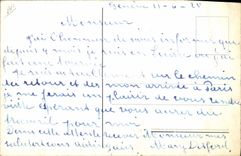 Genève 11-6-28
Monsieur
J'ai l'honneur de vous informer que
depuis 9 mois je suis en Suisse où j'ai
fait une
Je suis sur le chemin
du retour et dès mon arrivée à Paris
je me ferais un plaisir de vous rendre
visite espérant que vous aurez du
travail pour moi
Dans cette attente recevez Monsieur mes
salutations
Mary